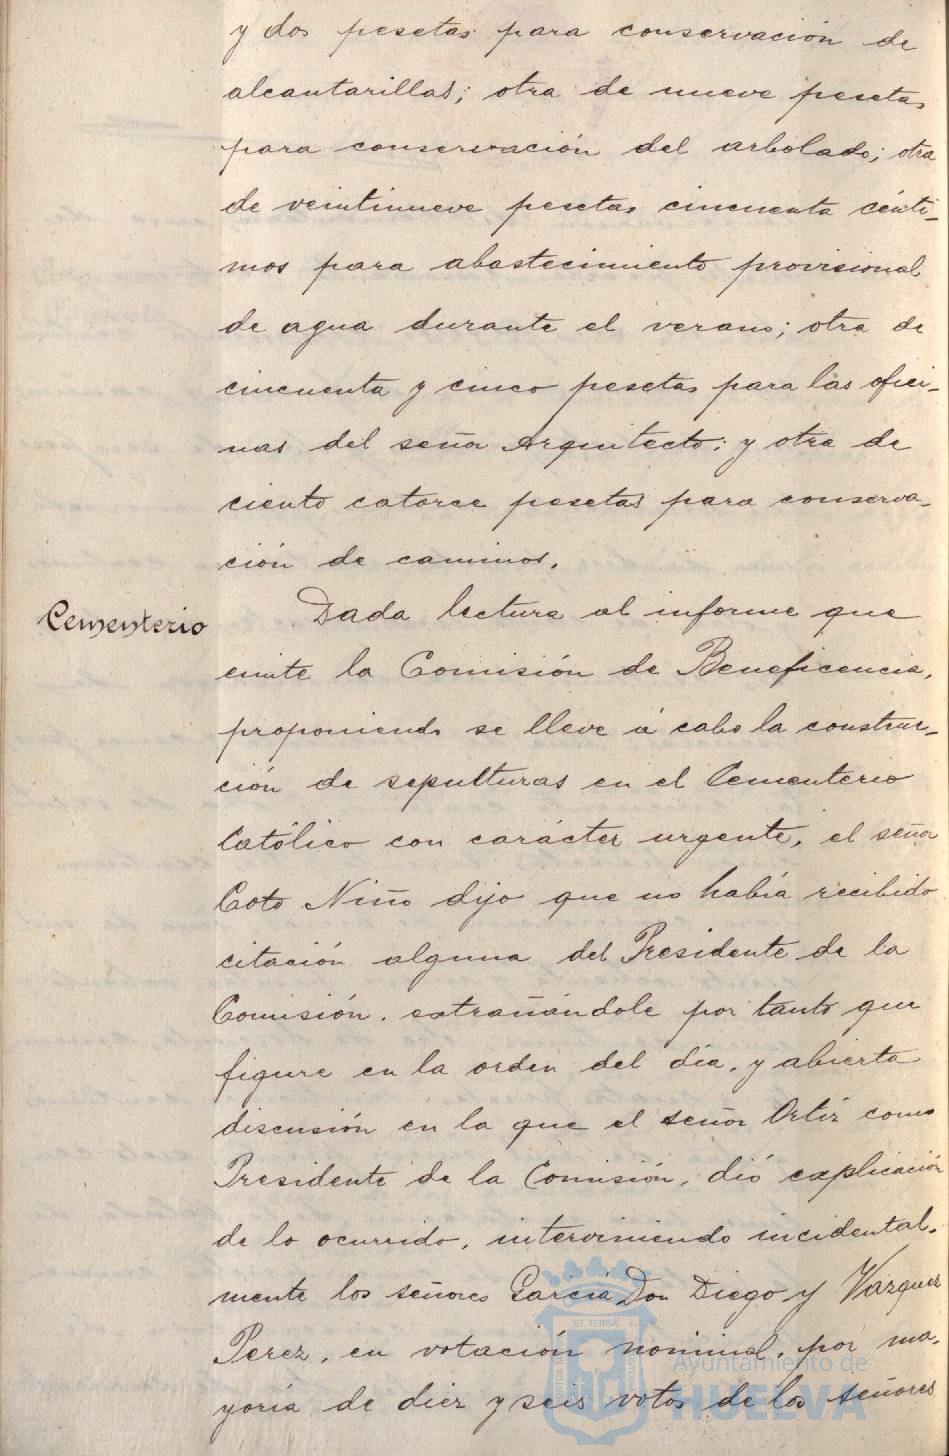 y dos pesetas para conservación de
alcantarillas; otra de nueve pesetas
para conservación del arbolado; otra
de veintinueve pesetas cincuenta cénti-
mos para abastecimiento provisional
de agua durante el verano; otra de
cincuenta y cinco pesetas para las ofici-
nas del señor Arquitecto; y otra de
ciento catorce pesetas para conserva-
ción de caminos.
Cementerio
Dada lectura al informe que
emite la Comisión de Beneficencia,
proponiendo se lleve á cabo la construc-
ción de sepulturas en el Cementerio
Católico con carácter urgente, el señor
Coto Niño dijo que no había recibido
citación alguna del Presidente de la
Comisión, extrañándole por tanto que
figure en la orden del día, y abierta
discusión en la que el señor Ortiz como
Presidente de la Comisión, dió explicación
de lo ocurrido, interviniendo incidental-
mente los señores García Don Diego y Vazquez
Perez, en votación nominal, por ma-
yoría de diez y seis votos de los señores
ET TERRÆ
Ayuntamiento de
HUELVA